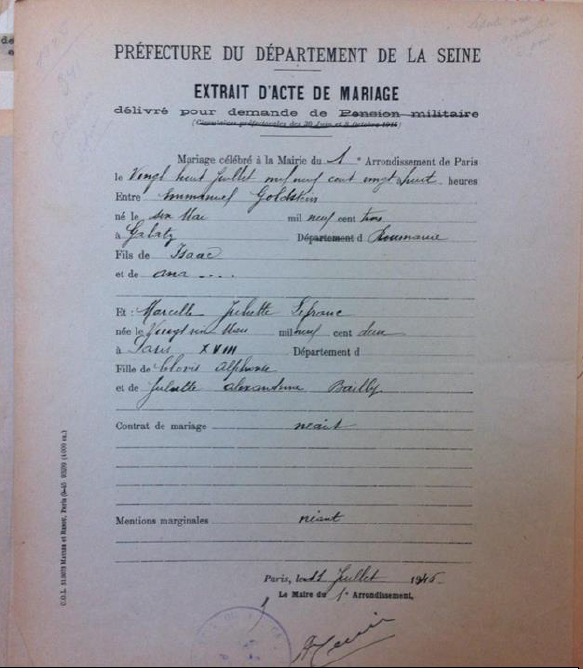 PRÉFECTURE DU DÉPARTEMENT DE LA SEINE
EXTRAIT D'ACTE DE MARIAGE
délivré pour demande de Pension militaire
(Circulaires préfectorales des 30 Juin et 5 Octobre 1915)
Mariage célébré à la Mairie du 1e Arrondissement de Paris
le Vingt huit Juillet mil neuf cent vingt huit heures
Entre Emmanuel Goldstein
né le six Mai mil neuf cent trois
à Galatz Département d Roumanie
Fils de Isaac
et de ana
Et : Marcelle Juliette Lefranc
née le Vingt six Mars mil neuf cent deux
à Paris XVIII Département d
Fille de Clovis Alphonse
et de Juliette alexandrine Bailly
Contrat de mariage néant
Mentions marginales néant
Paris, le 11 Juillet 1945
Le Maire du 1e Arrondissement,